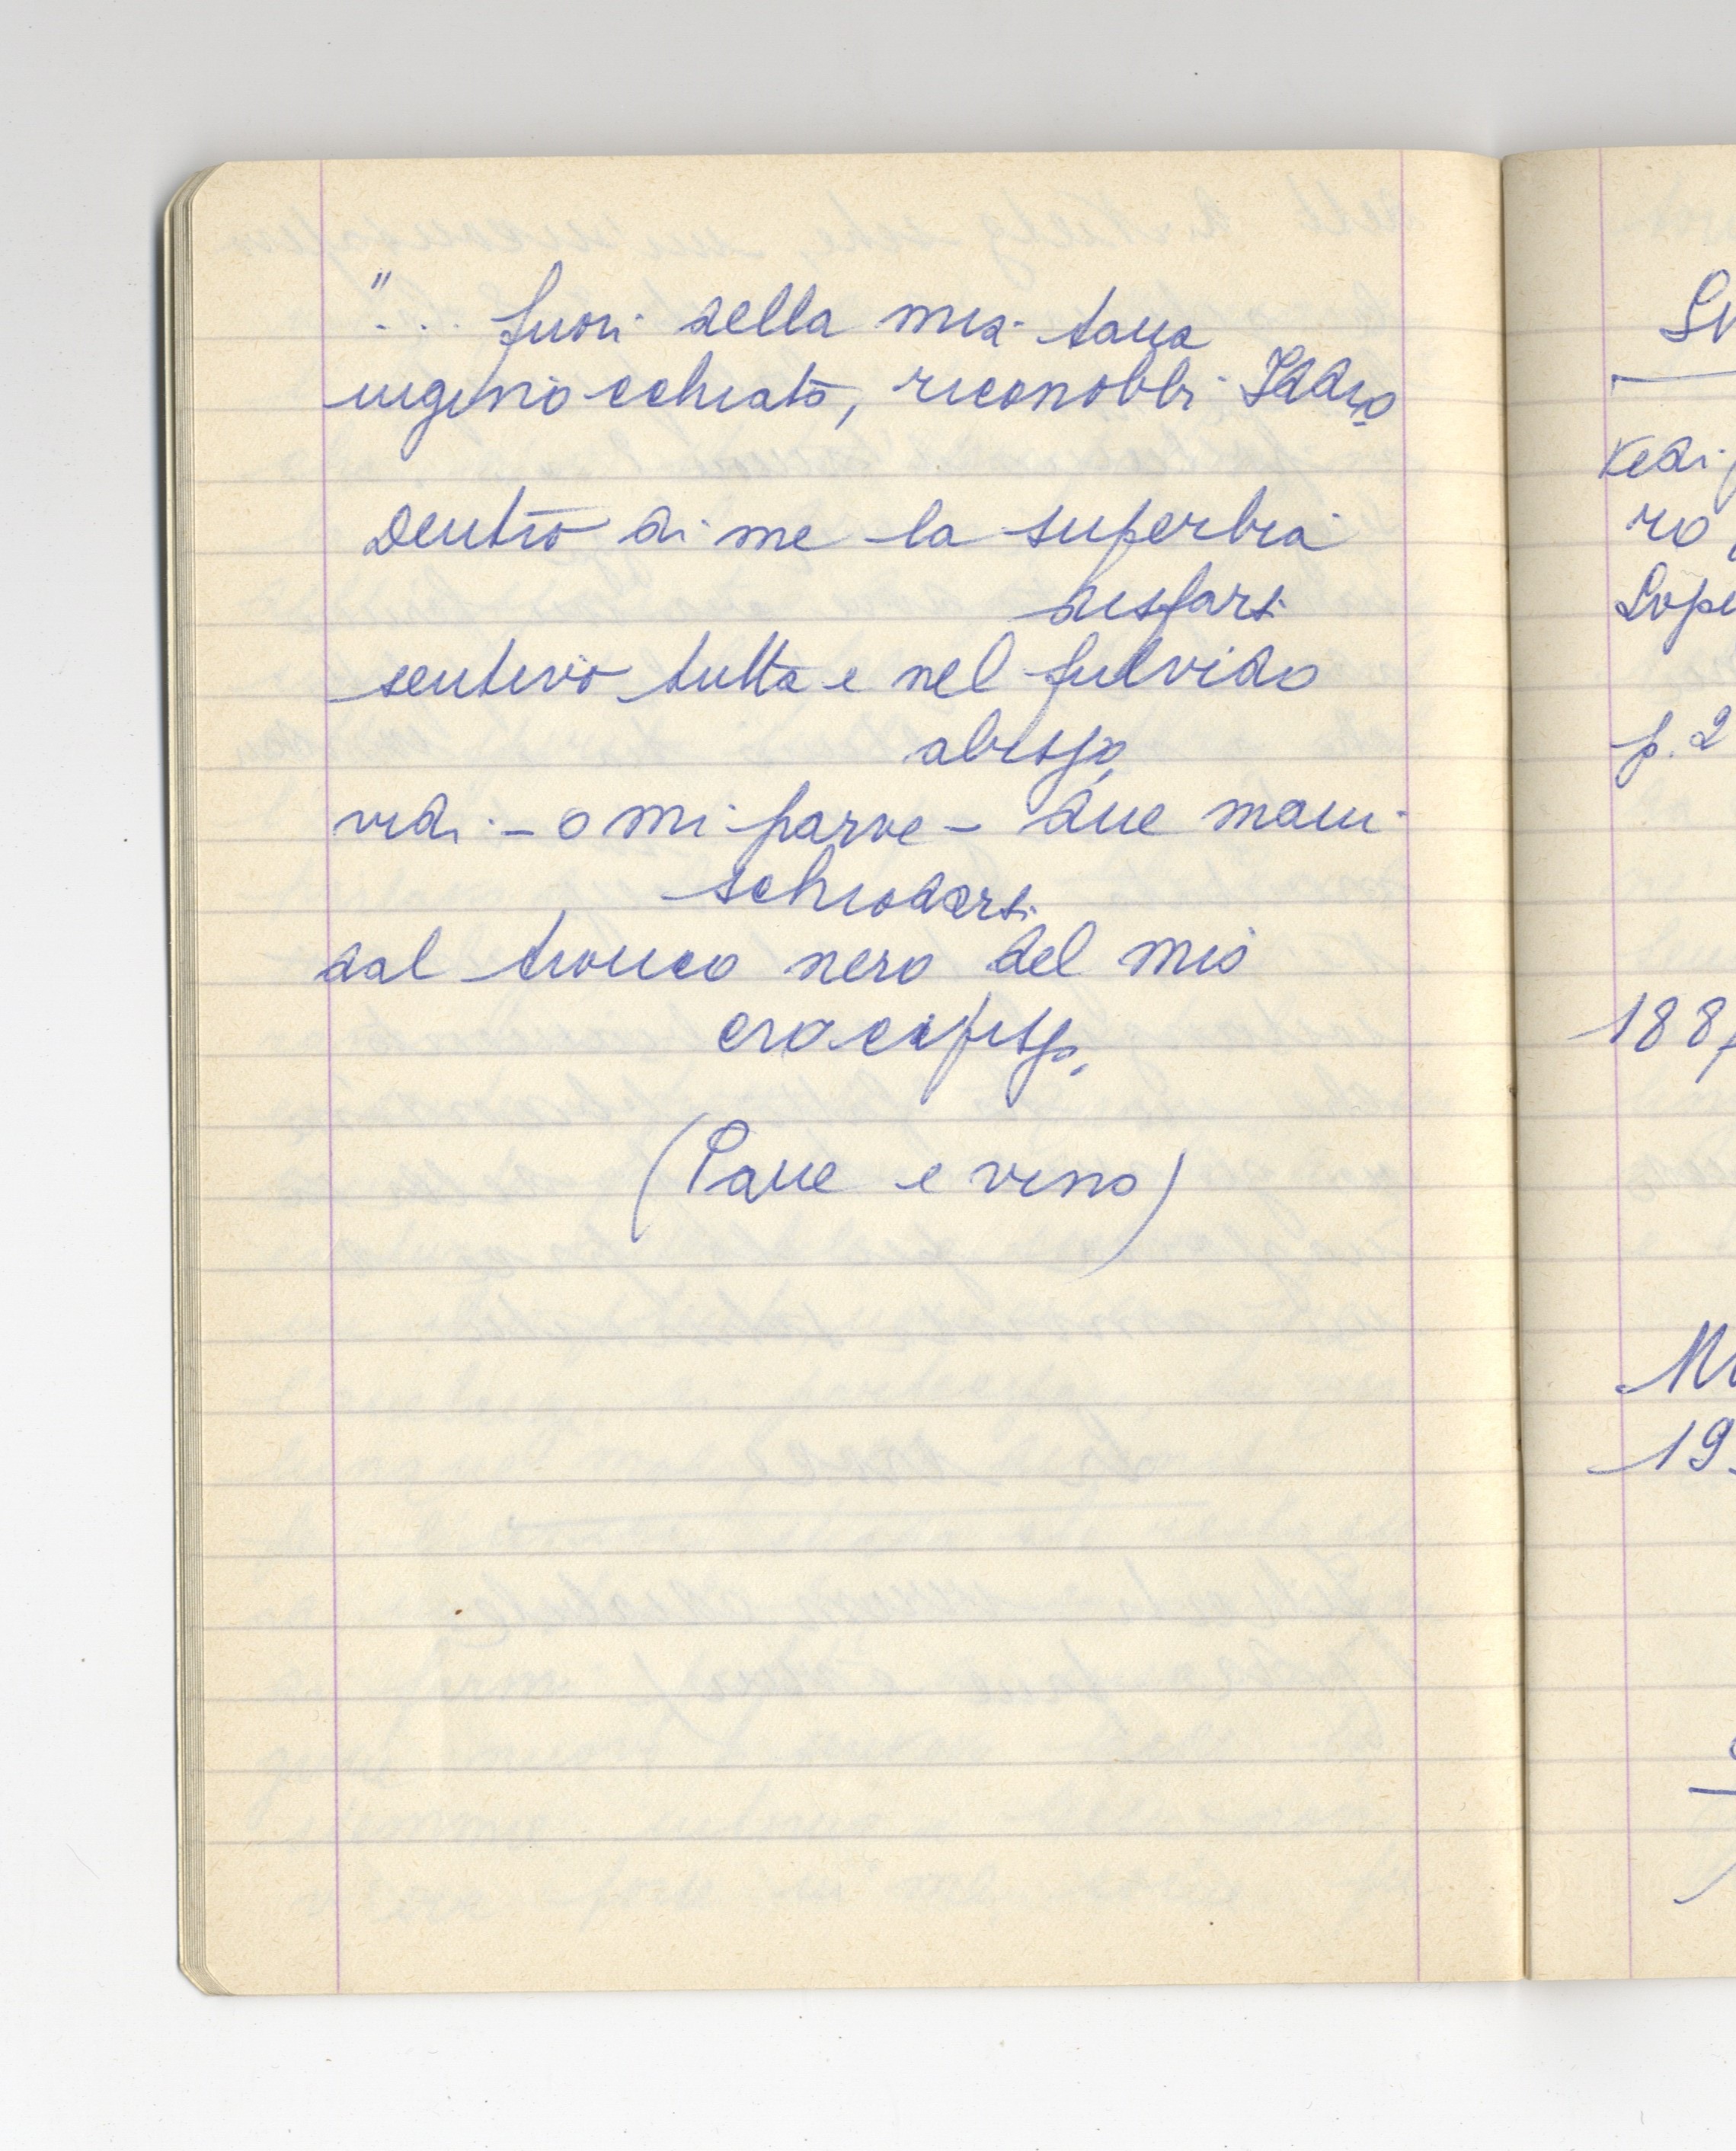 "... fuori della mia tana
inginocchiato, riconobbi Iddio
Dentro di me la superbia
disfarsi
sentivo tutta e nel fulvido
abisso
vidi - o mi parve - due mani
schiodarsi
dal tronco nero del mio
crocifisso.
(Pane e vino)
Vedi
ro
p. 2
188
19